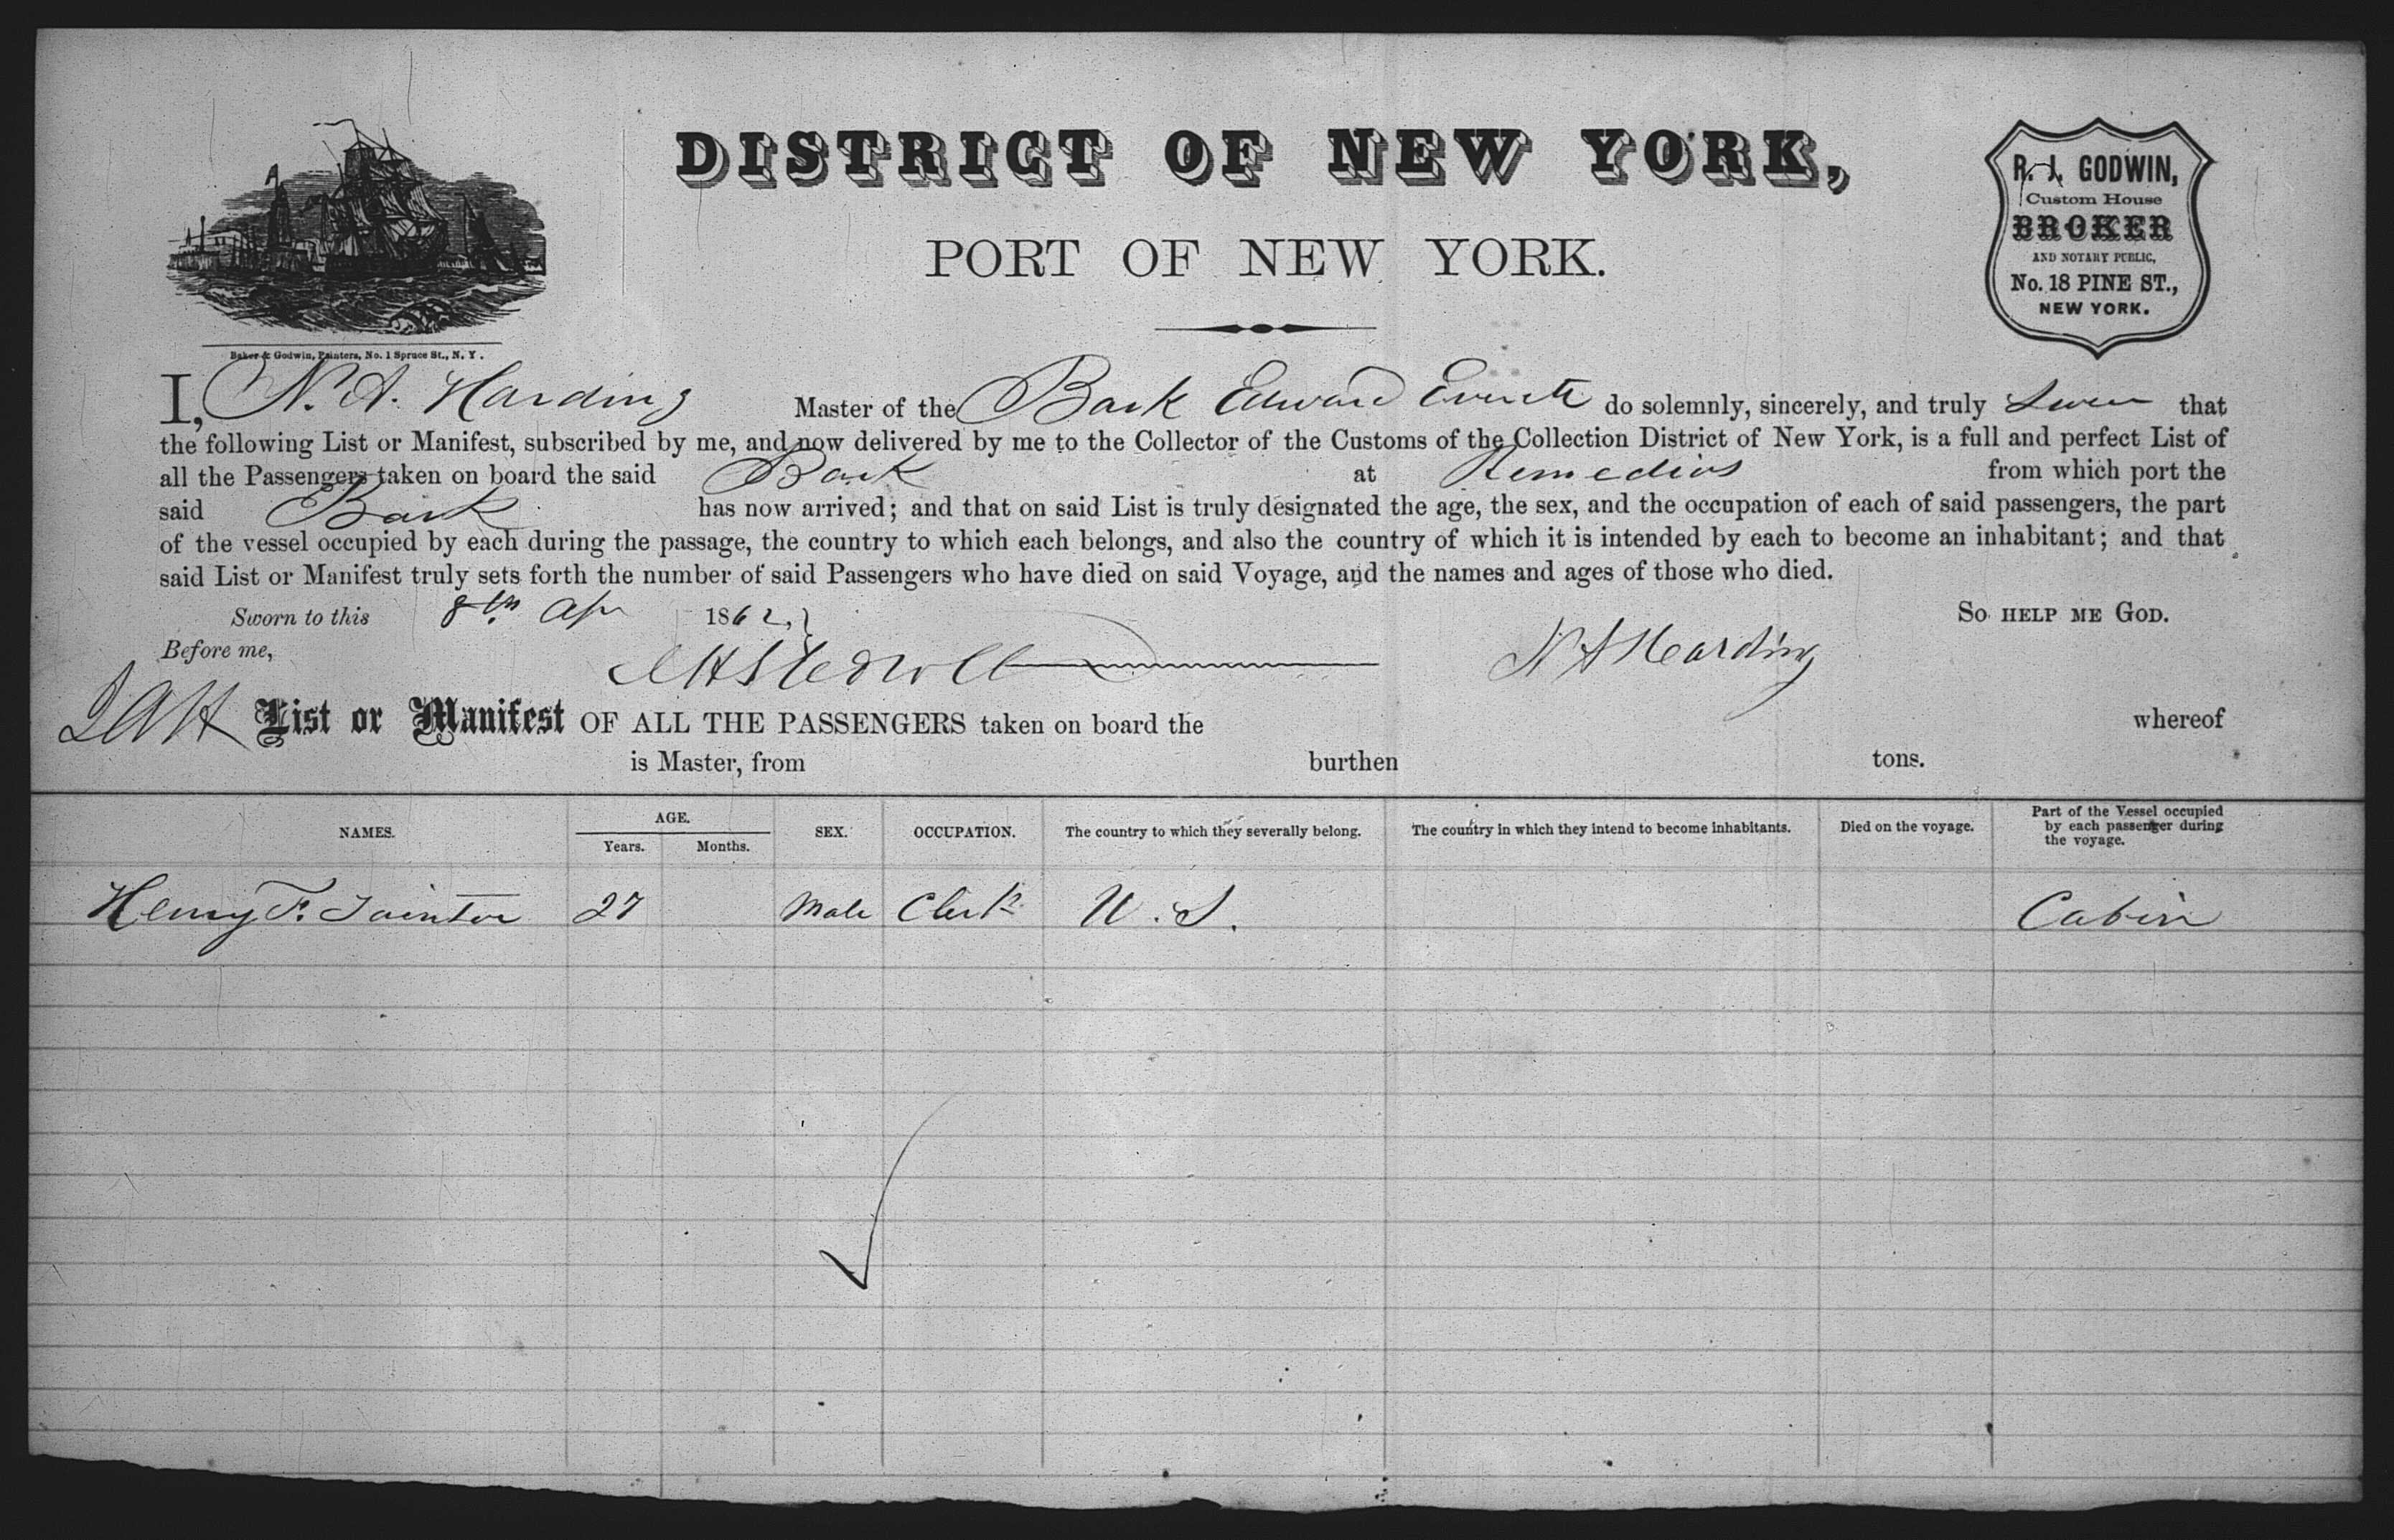 DISTRICT OF NEW YORK,
PORT OF NEW YORK.
R. J. GODWIN,
Custom House
BROKER
AND NOTARY PUBLIC,
No. 18 PINE ST.,
NEW YORK.
Baker & Godwin, Printers, No. 1 Spruce St., N. Y.
I, N. A. Harding Master of the Bark Edward Everett do solemnly, sincerely, and truly Swear that
the following List or Manifest, subscribed by me, and now delivered by me to the Collector of the Customs of the Collection District of New York, is a full and perfect List of
all the Passengers taken on board the said Bark at Remedios from which port the
said Bark has now arrived; and that on said List is truly designated the age, the sex, and the occupation of each of said passengers, the part
of the vessel occupied by each during the passage, the country to which each belongs, and also the country of which it is intended by each to become an inhabitant; and that
said List or Manifest truly sets forth the number of said Passengers who have died on said Voyage, and the names and ages of those who died.
Sworn to this 8th Ap 1862, SO HELP ME GOD.
Before me, N A Harding
List or Manifest OF ALL THE PASSENGERS taken on board the whereof
is Master, from burthen tons.
NAMES. AGE. SEX. OCCUPATION. The country to which they severally belong. The country in which they intend to become inhabitants. Died on the voyage. Part of the Vessel occupied by each passenger during the voyage.
Years. Months.
Henry F. Tainter 27 Male Clerk U.S. Cabin